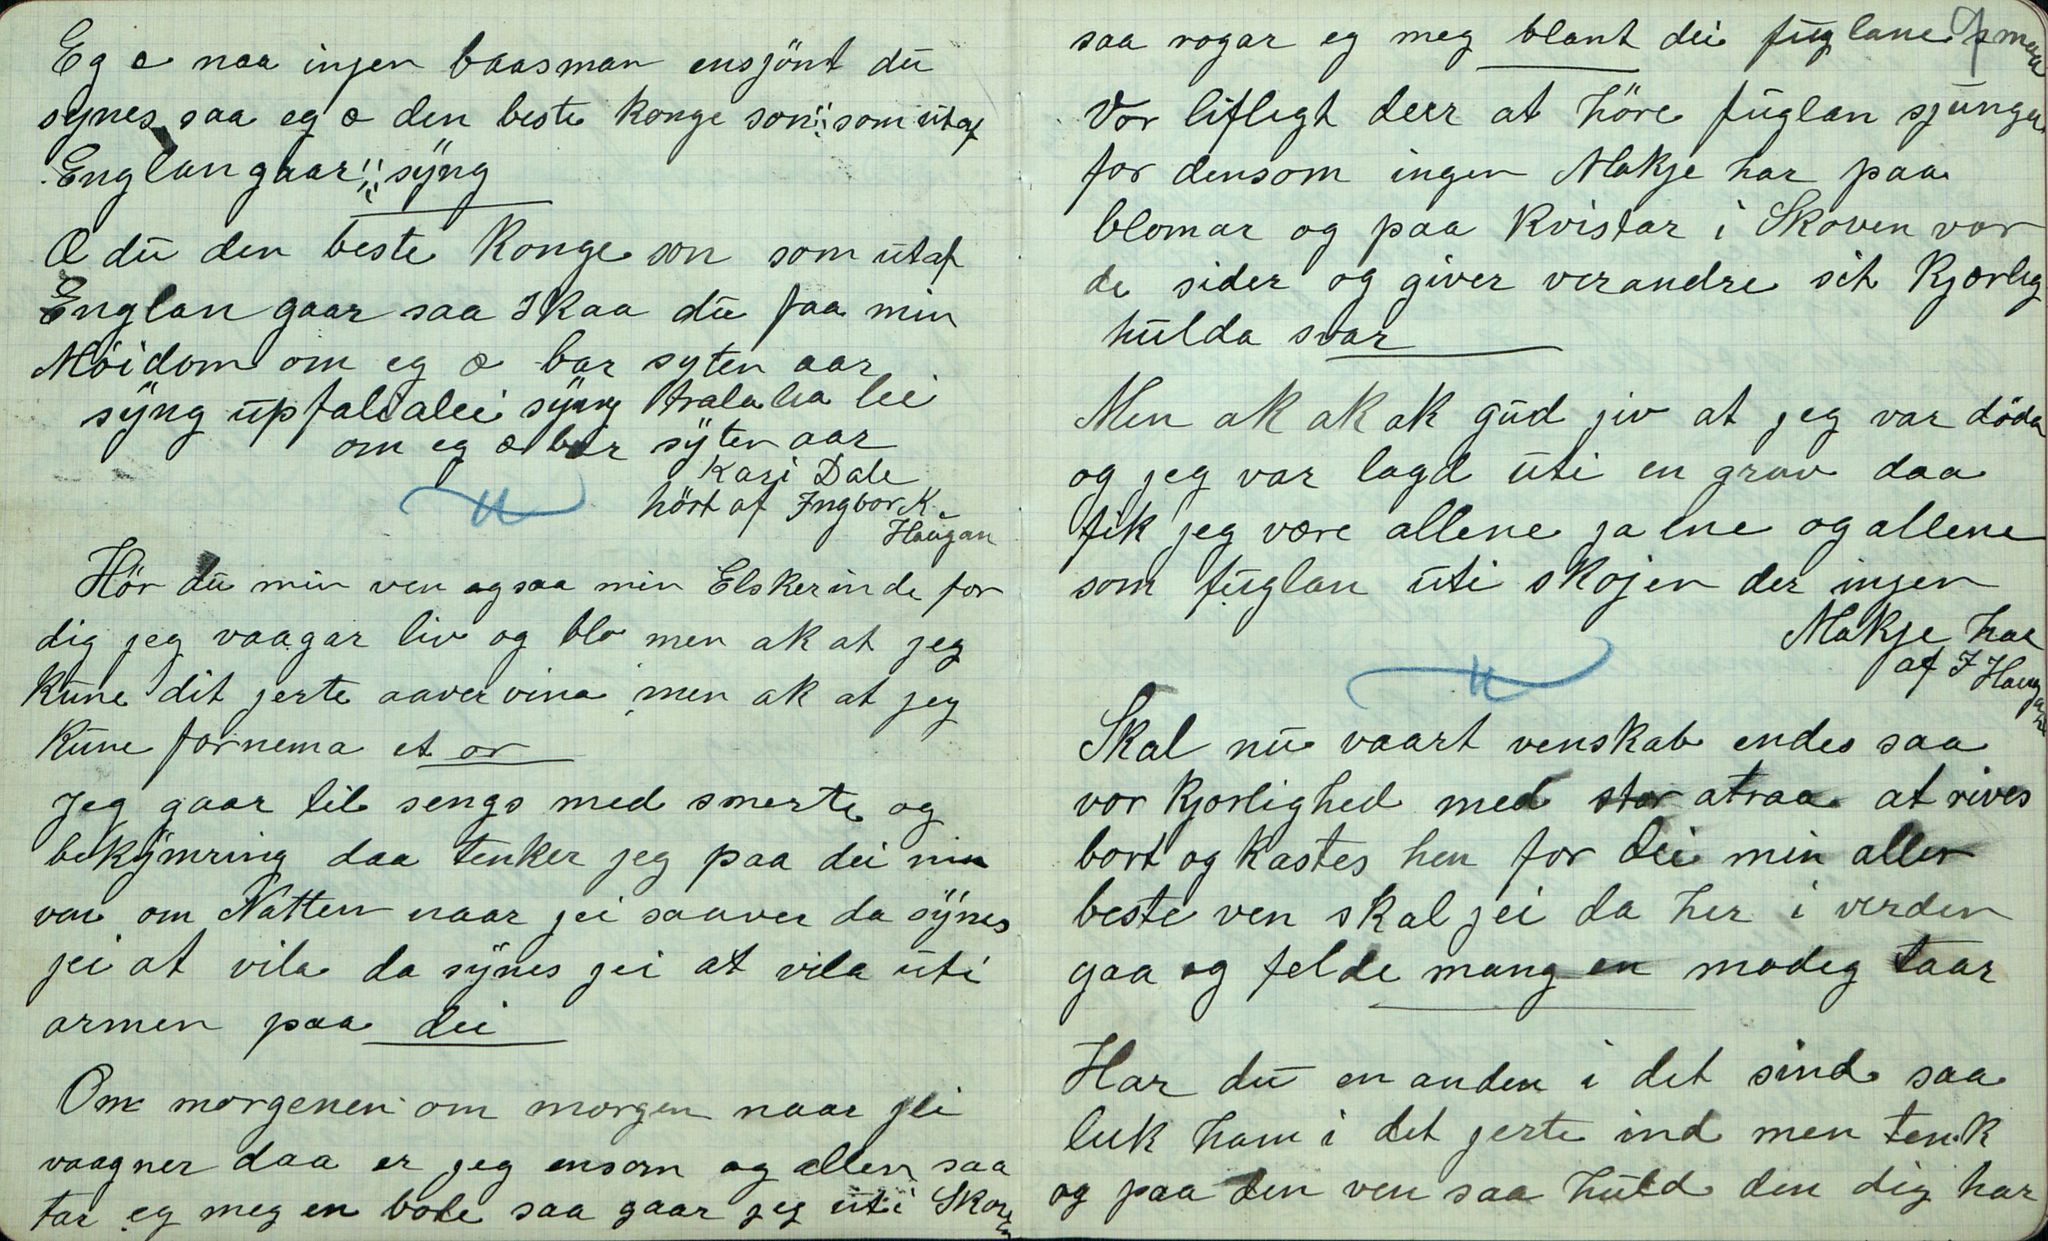 Eg æ naa ingen baasman ensjönt du
synes saa eg æ den beste konge son som utaf
Englan gaar syng
Æ du den beste konge son som utaf
Englan gaar saa skaa du faa min
Möidom om eg æ bar syten aar
syng upfaleralei syng tralala lei
om eg æ bar syten aar
Kari Dale
hört af Ingbor K.
Haugan
Hör du min ven ogsaa min Elskerinde for
dig jeg vaagar liv og blo men ak at jeg
kune dit jerte aavervina men ak at jeg
kune fornema et or
Jeg gaar til sengs med smerte og
bekymring daa tenker jeg paa dei min
ven om Natten naar jei saaver da synes
jei at vila da synes jei at vila uti
armen paa dei
Om morgenen om morgen naar jei
vaagner daa er jeg ensom og allen saa
tar eg meg en bode saa gaar jeg uti Skoven
saa rogar eg meg blant dei fuglane smaa
Vor lifligt deer at höre fuglan sjunge
for densom ingen Makje har paa
blomar og paa kvistar i Skoven vor
de sider og giver verandre sit kjærlig
hulda svar
Men ak ak ak gud jiv at jeg var döda
og jeg var lagd uti en grav daa
fik jeg være allene ja ene og allene
som fuglan uti skojen der ingen
Makje har
af I Haugan
Skal nu vaart venskab endes saa
vor kjorlighed med stor atraa at rives
bort og kastes hen for dei min aller
beste ven skal jei da her i verden
gaa og felde mang en modeg taar
Har du en anden i det sind saa
luk ham i det jerte ind men tenk
og paa den ven saa huld den dig har